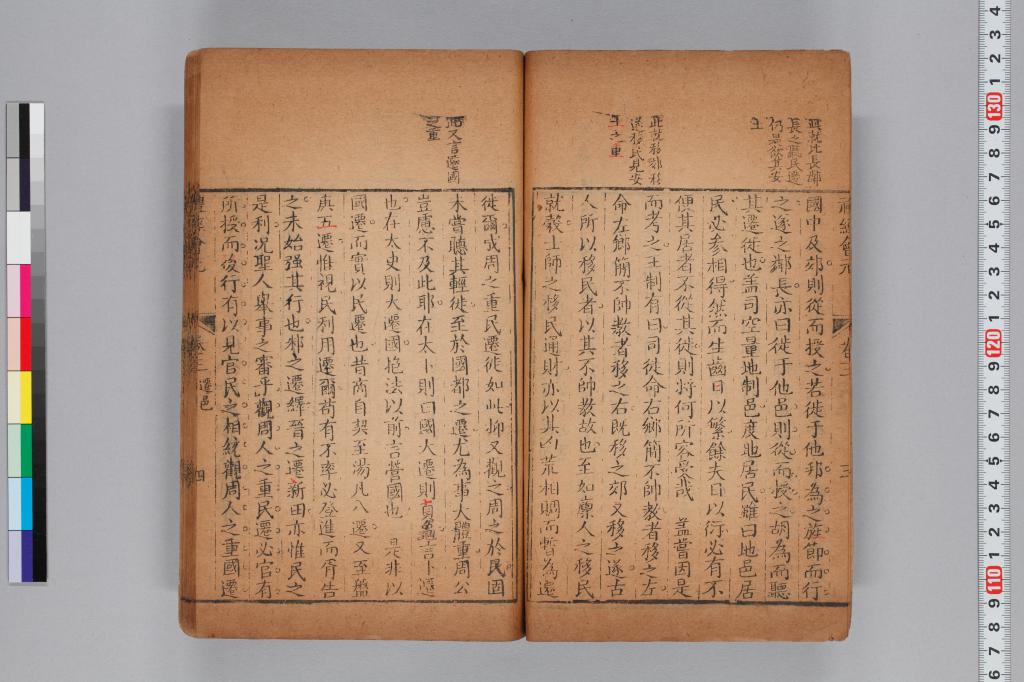 國中及郊則從而授之若徙于他邦為之旌節而行
之遂之鄰長亦曰徙于他邑則從而授之胡為而聽
其遷徙也盖司空量地制邑度地居民雖曰地邑居
民必參相得然而生齒日以繁餘夫日以衍必有不
便其居者不從其徙則將何所容受哉 盖嘗因是
而考之王制有曰司徒命右鄉簡不帥教者移之左
命左鄉簡不帥教者移之右既移之郊又移之遂古
人所以移民者以其不帥教故也至如廩人之移民
就穀士師之移民通財亦以其凶荒相賙而暫為遷
徙爾或周之重民遷徙如此抑又觀之周之於民固
未嘗聽其輕徙至於國都之遷尤為事大體重周公
豈慮不及此耶在太卜則曰國大遷則貞龜言卜遷
也在太史則大遷國抱法以前言誓國也 是非以
國遷而實以民遷也昔商自契至湯凡八遷又至盤
庚五遷惟視民利用遷爾苟有不率必登進而胥告
之未始强其行也邾之遷繹晉之遷新田亦惟民之
是利况聖人舉事之審乎觀周人之重民遷必官有
所授而後行有以見官民之相統觀周人之重國遷
卷三
遷邑
四
三
長之聽民遷
仍是欲其安
土
遷移民見安
土之重
又言遷國
之重